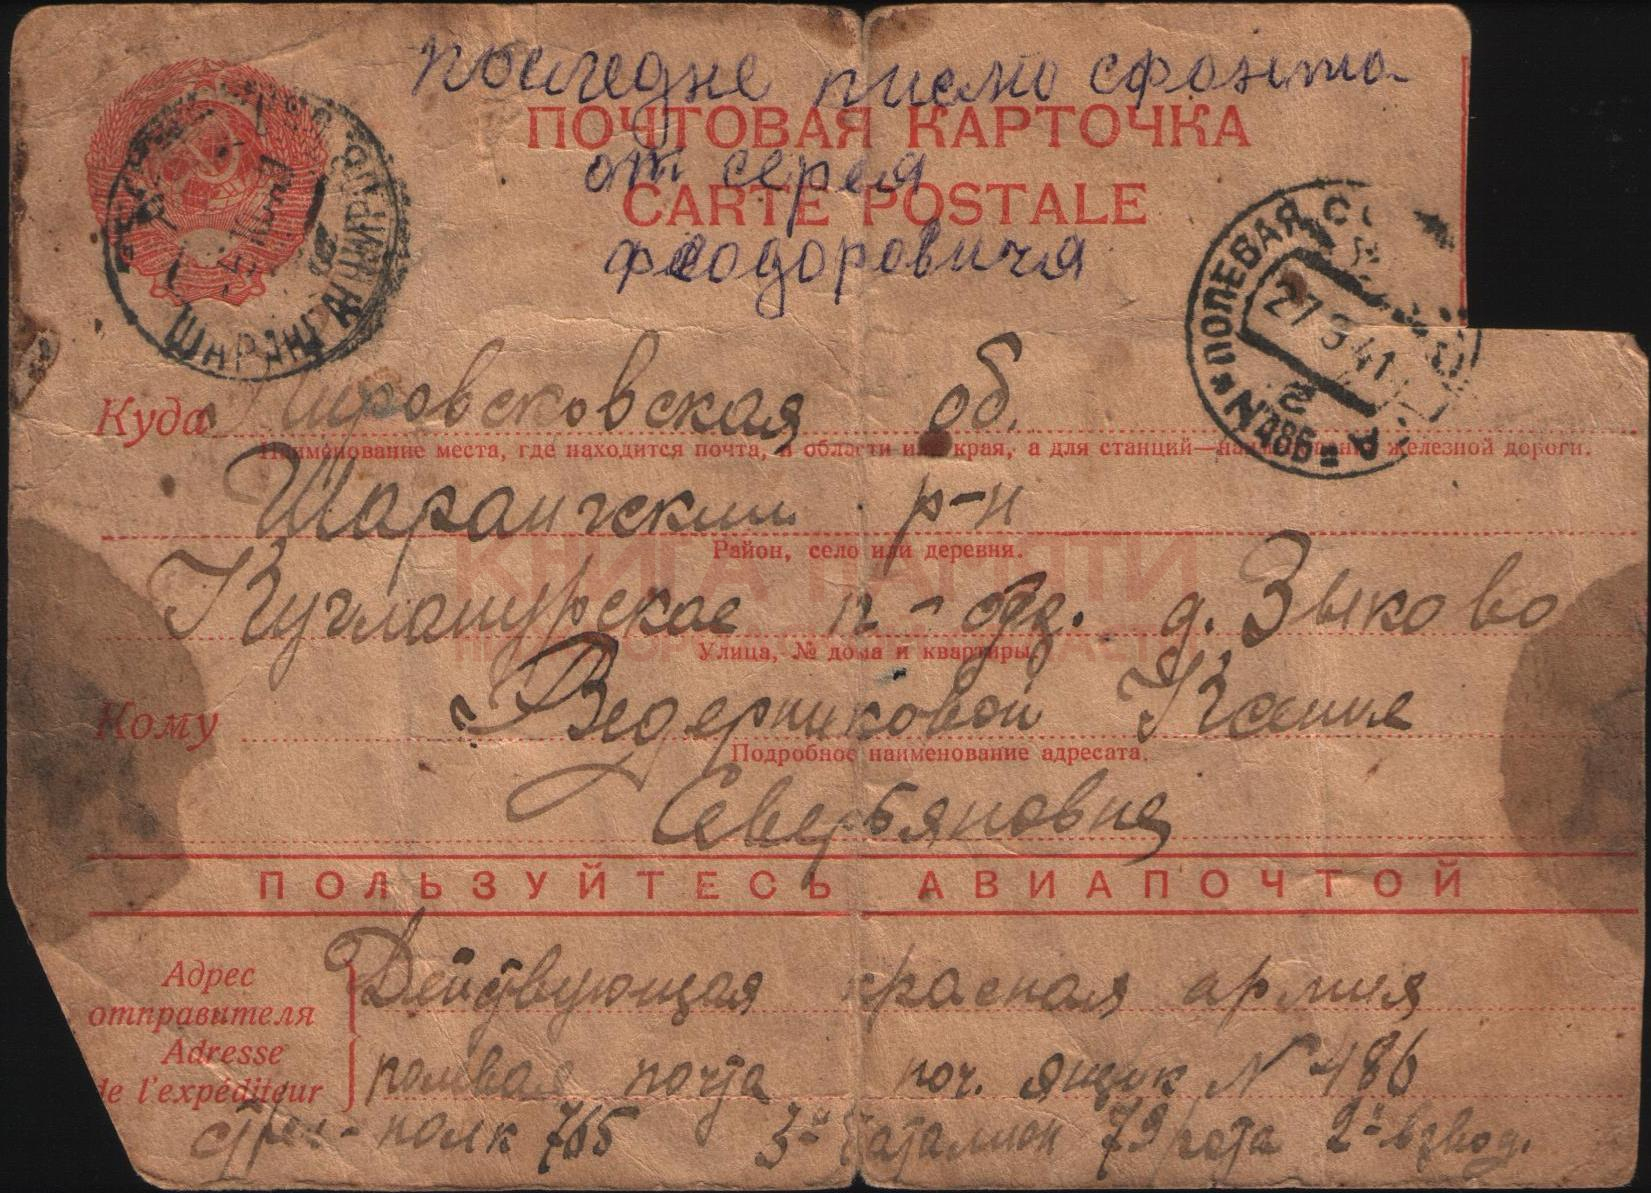 последне писмо сфонта
ПОЧТОВАЯ КАРТОЧКА
от серея
CARTE POSTALE
феодоровичя
ШАРАНГА КИРОВ
ПОЛЕВАЯ
27 9 41
N 486
Куда Кировсковская об.
Наименование места, где находится почта, и области или края, а для станций—наименование железной дороги.
Шарангский р-н
Район, село или деревня.
КНИГА ПАМЯТИ
Куглонурское п-отд. д. Зыково
Улица, № дома и квартиры.
Кому Ведерниковой Ксении
Подробное наименование адресата.
Северьяновне
ПОЛЬЗУЙТЕСЬ АВИАПОЧТОЙ
Адрес отправителя
Adresse de l'expéditeur
Действующая красная армия
полевая почта поч. ящик N 486
стрел-полк 765 3-й баталион 79 рота 2-й взвод.